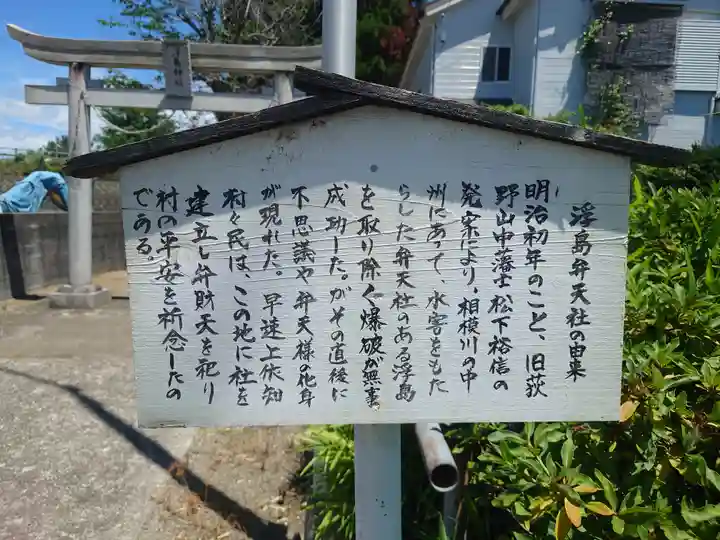 浮島弁天社の由来
明治初年のこと、旧荻
野山中藩士松下裕信の
発案により、相模川の中
洲にあって、水害をもた
らした弁天社のある浮島
を取り除く爆破が無事
成功した。がその直後に
不思議や弁天様の化身
が現れた。早速上依知
村々民は、この地に社を
建立し弁財天を祀り
村の平安を祈念したの
である。